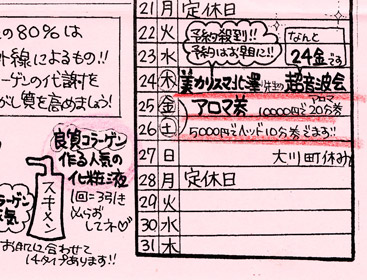 の80%は
外線によるもの!!
ーゲンの代謝を
がし質を高めましょう!
良質コラーゲン
作る人気の
化粧液
1回=3プッシュ
スキメン
コラーゲン
お肌に合わせて
14タイプあります!!
21 月 定休日
22 火 予約殺到!!
23 水 予約はお早目に!!
なんと
24金です
24 木 美カリスマ北澤先生の超音波会
25 金 アロマ券 10000円でアロマ20分券
26 土 5000円でハンド10分券でます!!
27 日 大川町休み
28 月 定休日
29 火
30 水
31 木